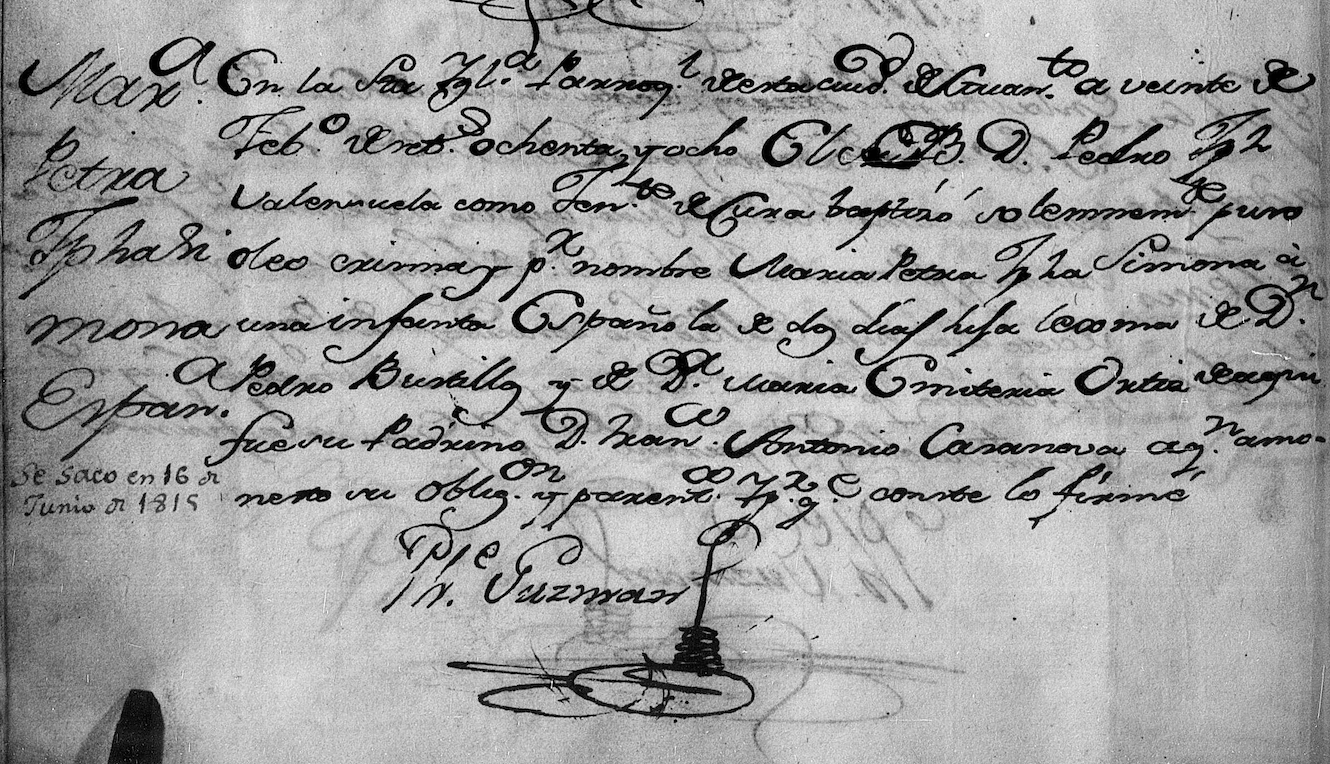 Mar.ª
Petra
Jpha Si
mona
Españ.ª
Se Saco en 16 de
Junio de 1815
En la Sta Ygl.ª Parroq.l de esta ciud.d de Guan.to a veinte de
Feb.o de set.s ochenta, y ocho El B. D. Pedro Jph
Valenzuela como Ten.te de Cura baptizó solemnem.te puso
oleo crisma y p.r nombre Maria Petra Jpha Simona à
una infanta Española de dos dias hija lexma de D.n
Pedro Bustillos y de D.ª Maria Emiteria Ortiz de aqui
fue su Padrino D. Fran.co Antonio Casanova a q.n amo-
neste su oblig.on y parent.co Y p.r q.e conste lo firmé
Guzman